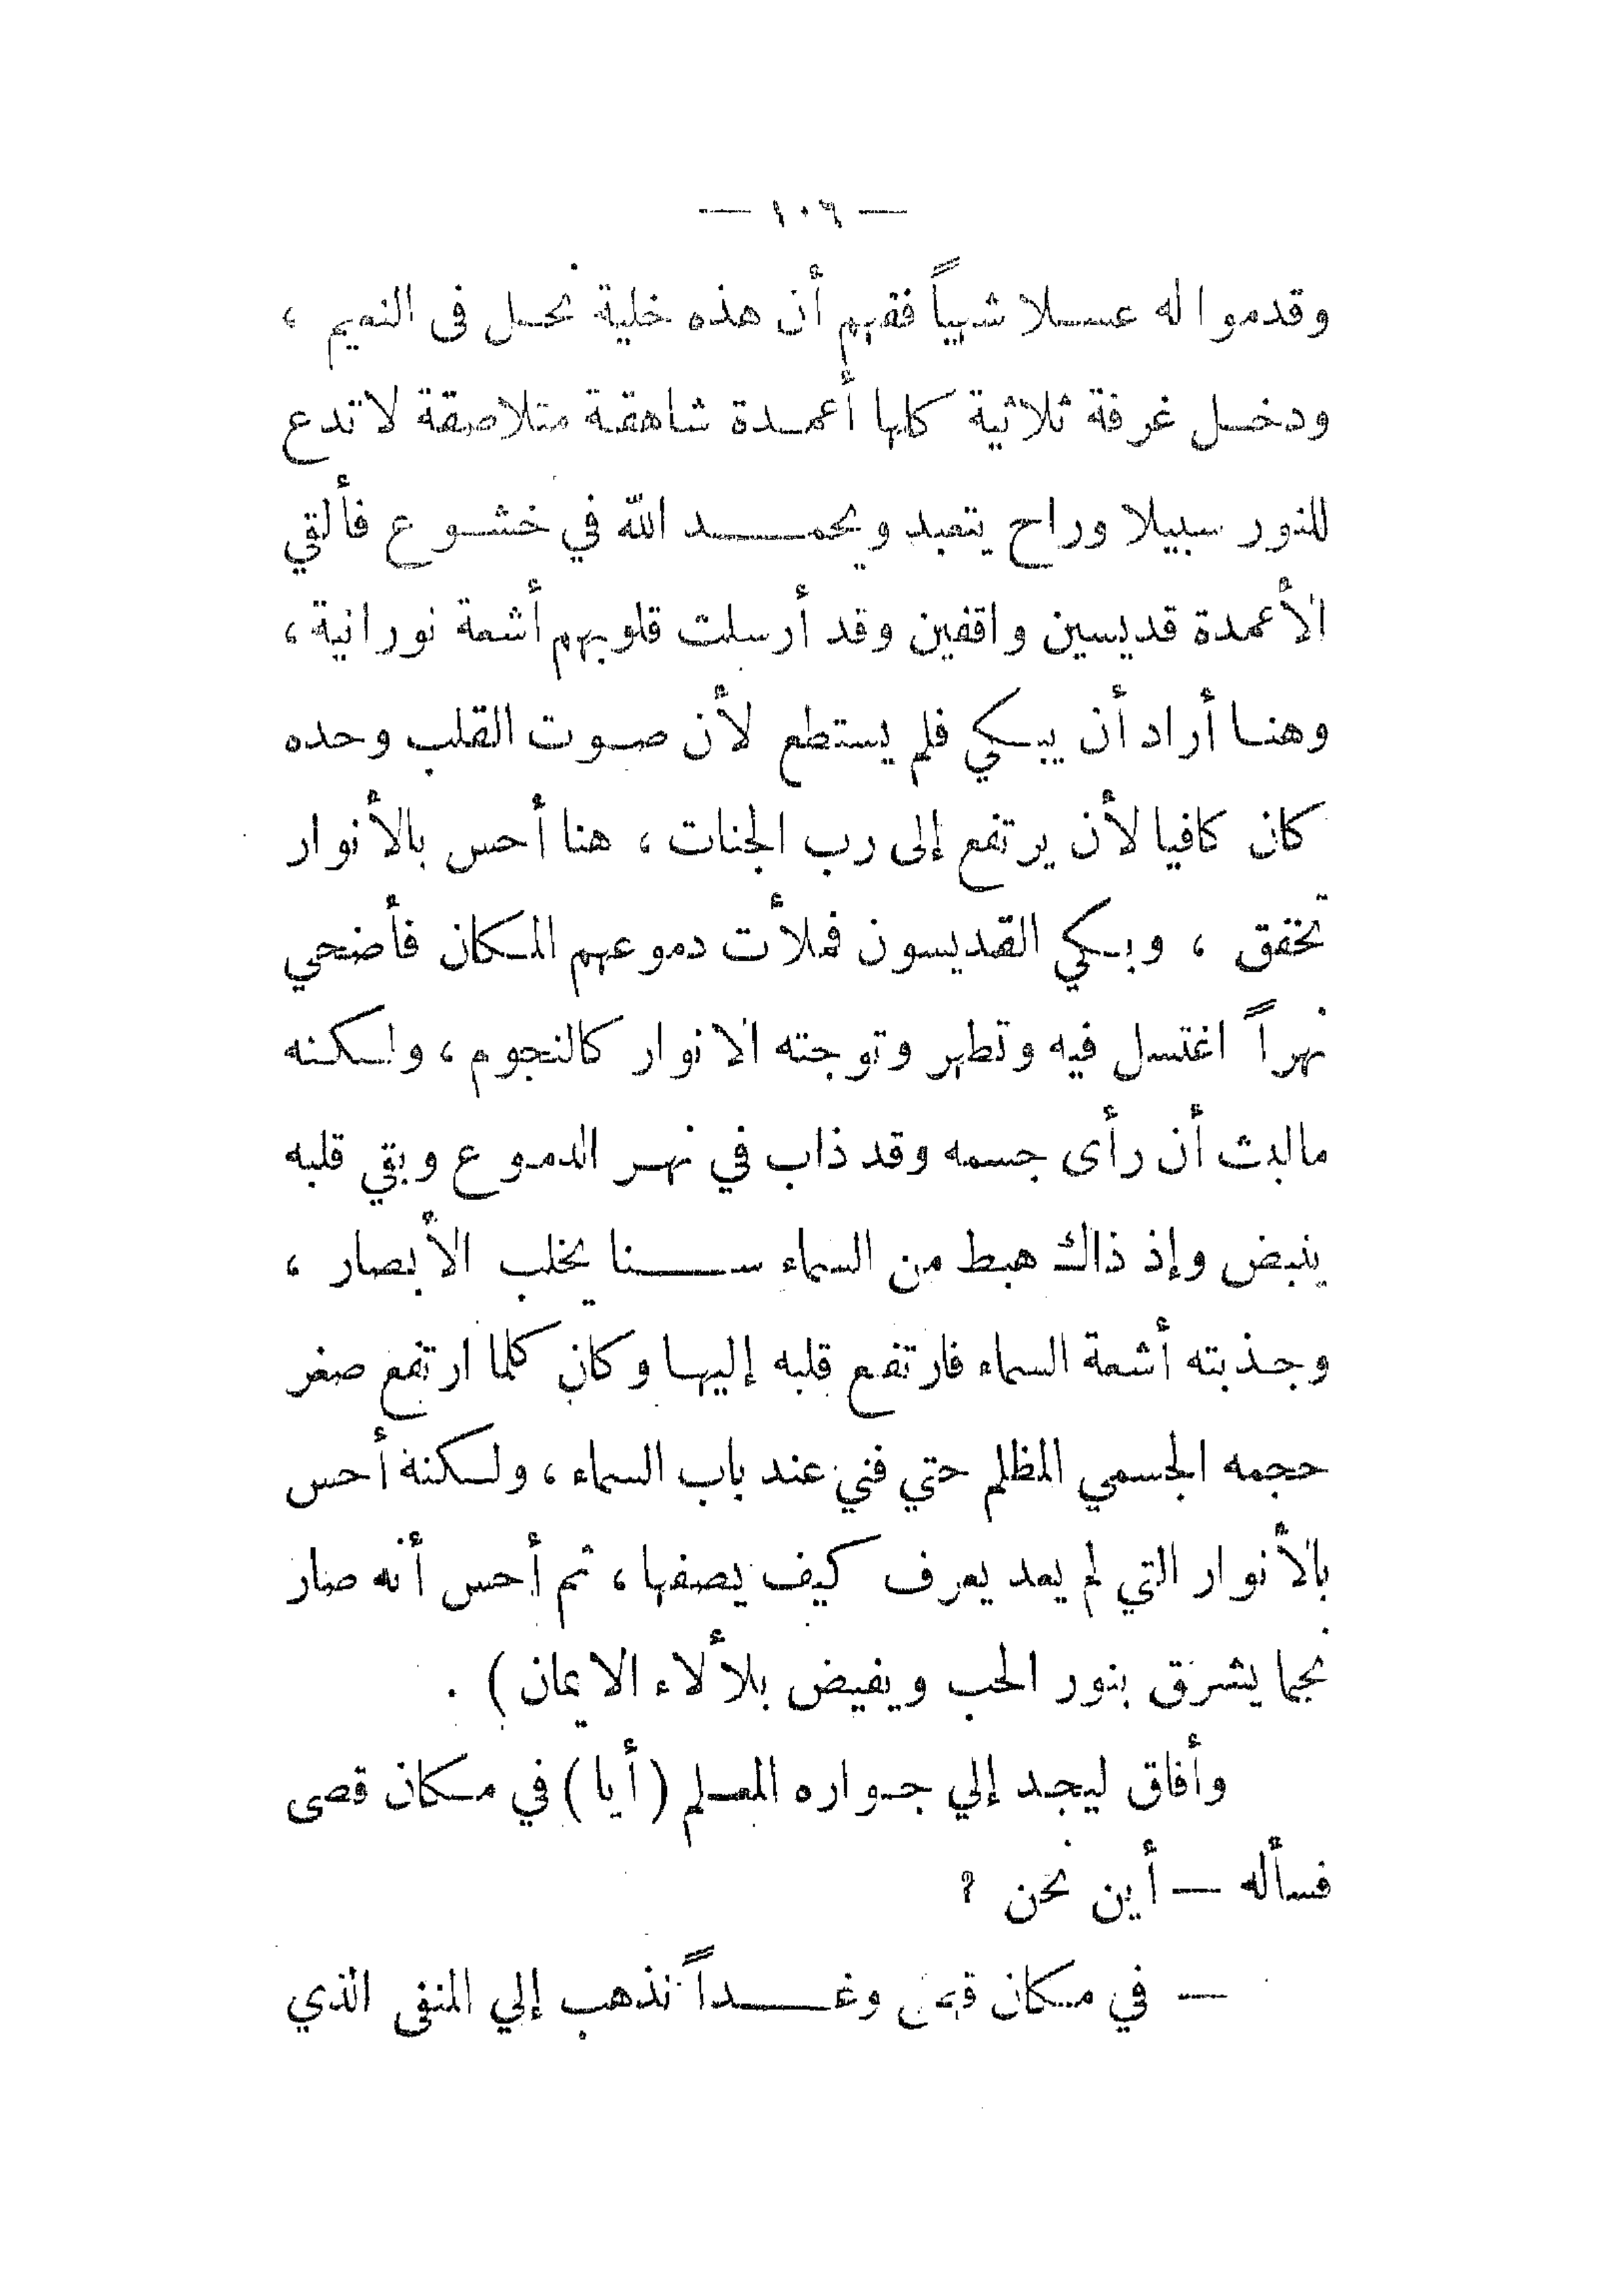 — ١٠٦ —
وقدموا له عسلا شهياً ففهم أن هذه خلية نحل فى النعيم ،
ودخل غرفة ثلاثية كلها أعمدة شاهقة متلاصقة لا تدع
للنور سبيلا وراح يتعبد ويحمد الله في خشوع فألقي
الأعمدة قديسين واقفين وقد أرسلت قلوبهم أشعة نورانية ،
وهنا أراد أن يبكي فلم يستطع لأن صوت القلب وحده
كان كافيا لأن يرتفع إلى رب الجنات ، هنا أحس بالأنوار
تخفق ، وبكي القديسون فملأت دموعهم المكان فأضحي
نهراً اغتسل فيه وتطهر وتوجته الانوار كالنجوم ، ولكنه
مالبث أن رأى جسمه وقد ذاب في نهر الدموع وبقي قلبه
ينبض وإذ ذاك هبط من السماء سنا يخلب الأبصار ،
وجذبته أشعة السماء فارتفع قلبه إليها وكان كلما ارتفع صغر
حجمه الجسمي المظلم حتي فني عند باب السماء ، ولكنه أحس
بالأنوار التي لم يعد يعرف كيف يصفها ، ثم أحس أنه صار
نجما يشرق بنور الحب ويفيض بلألاء الايمان ) .
وأفاق ليجد إلي جواره المعلم ( أيا ) في مكان قصى
فسأله — أين نحن ؟
— في مكان وغداً نذهب إلي المنفى الذي